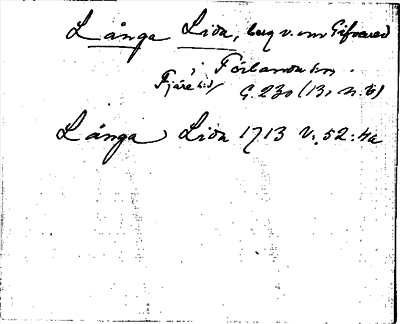 Långa Lida, beg v. om Gifvared
i Förlanda sn.
Fjäre hd G. 230 (13, n. 6)
Långa Lida 1713 V. 52:4a